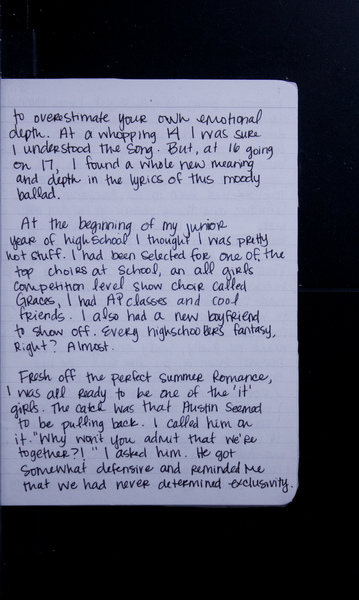 to overestimate your own emotional
depth. At a whopping 14 I was sure
I understood the song. But, at 16 going
on 17, I found a whole new meaning
and depth in the lyrics of this moody
ballad.
At the beginning of my junior
year of high school I thought I was pretty
hot stuff. I had been selected for one of the
top choirs at school, an all girls
competition level show choir called
Graces, I had AP classes and cool
friends. I also had a new boyfriend
to show off. Every highschooler's fantasy,
right? Almost.
Fresh off the perfect summer romance,
I was all ready to be one of the 'it'
girls. The catch was that Austin seemed
to be pulling back. I called him on
it. "Why won't you admit that we're
together?!" I asked him. He got
somewhat defensive and reminded me
that we had never determined exclusivity.